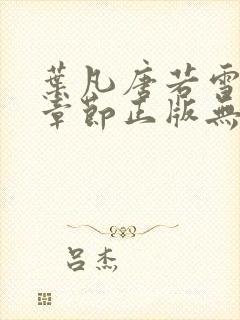 葉凡唐若雪
章節正版無
吕杰